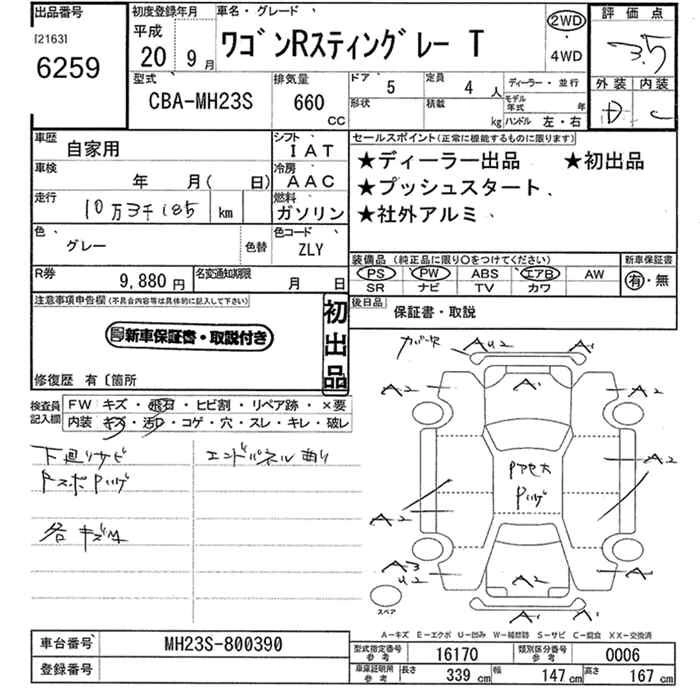 出品番号
[2163]
6259
初度登録年月
平成
20 9月
車名・グレード
ワゴンRスティングレー T
2WD
・
4WD
評価点
3.5
外装 内装
D C
型式
CBA-MH23S
排気量
660
CC
ドア 5
定員 4人
形状
積載 kg
ディーラー・並行
モデル年式 年
ハンドル 左・右
車歴 自家用
シフト IAT
車検 年 月( 日)
冷房 AAC
走行 10万3千185 km
燃料 ガソリン
色 グレー
色替
色コード ZLY
R券 9,880円
名変通知期限 月 日
セールスポイント(正常に機能するものに限ります)
★ディーラー出品 ★初出品
★プッシュスタート、
★社外アルミ、
装備品(純正品に限り○をつけてください)
PS PW ABS エアB AW
SR ナビ TV カワ
新車保証書
有・無
後日品 保証書・取説
注意事項申告欄(不具合内容等は具体的に記入して下さい)
新車保証書・取説付き
初出品
修復歴 有〔箇所
検査員記入欄
FW キズ・飛石・ヒビ割・リペア跡・×要
内装 キズ・汚れ・コゲ・穴・スレ・キレ・破レ
下廻りサビ
エンドパネル曲り
各キズM
ガバー欠
AU2 A1
A2 A1 A2
A2 A2
A3
U2 A2 A2
A1 A1
スペア
A-キズ E-エクボ U-凹み W-補修跡 S-サビ C-腐食 XX-交換済
車台番号 MH23S-800390
登録番号
型式指定番号 参考 16170
類別区分番号 参考 0006
車庫証明用 参考
長さ 339cm
幅 147cm
高さ 167cm